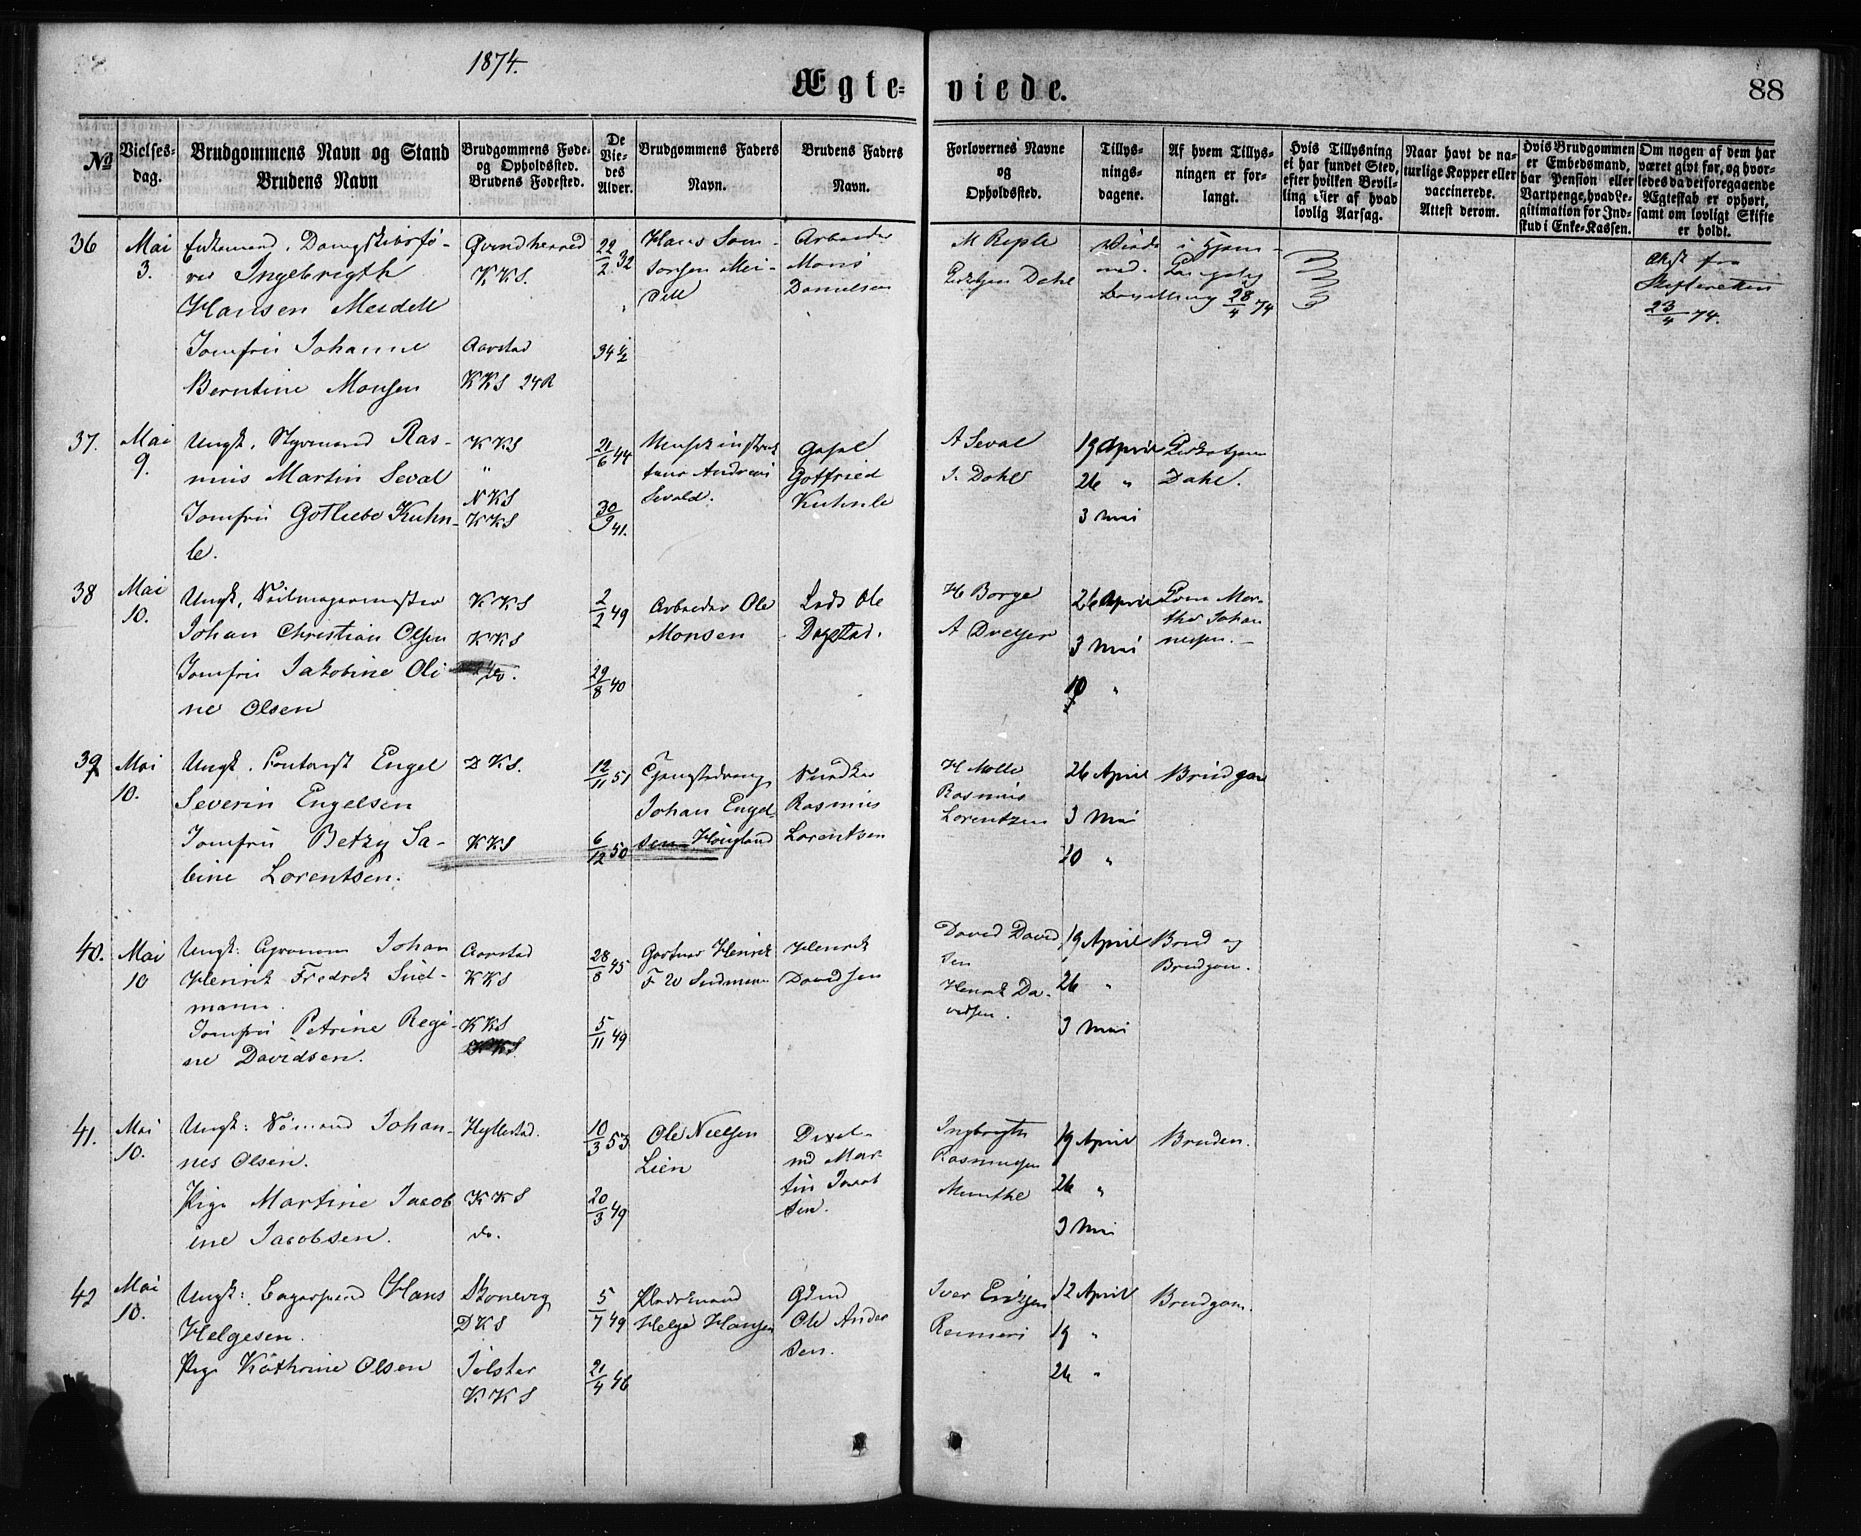 1874.
Ægte= viede.
88
No
Vielses-
dag.
Brudgommens Navn og Stand
Brudens Navn
Brudgommens Føde-
og Opholdssted.
Brudens Fødested.
De
Vie-
des
Alder.
Brudgommens Faders
Navn.
Brudens Faders
Navn.
Forlovernes Navne
og
Opholdssted.
Tillys-
nings-
dagene.
Af hvem Tillys-
ningen er for-
langt.
Hvis Tillysning
ei har fundet Sted,
efter hvilken Bevil-
ling eller af hvad
lovlig Aarsag.
Naar havt de na-
turlige Kopper eller
vaccinerede.
Attest derom.
Hvis Brudgommen
er Embedsmand,
har Pension eller
Vartpenge, hvad Le-
gitimation for Ind-
skud i Enke-Kassen.
Om nogen af dem har
været givt før, og hvor-
ledes da det foregaaende
Ægteskab er ophørt,
samt om lovligt Skifte
er holdt.
36
Mai
3.
Enkemand, Dampskibsfø-
rer Ingebrigth
Hansen Meidell
Jomfru Johanne
Berntine Monsen
Qvindherred
KKS.
Aarstad
KKS 24R
22/2 32
34 1/2
Hans
Mei-
dell
Arbeider
Mons
Danielsen
M Reple
Dahl
28/4 74
Skifteretten
23/4 74.
37.
Mai
9.
Ungk. Styrmand Ras-
mus Martin Seval
Jomfru Gotliebe Kuhn-
le.
KKS
"
NKS
KKS
21/6 44
30/9 41.
Andreas
Sevald.
Gotfried
Kuhnle
A Seval
J. Dahl
19 April
26 "
3 Mai
Dahl.
38
Mai
10.
Ungk. Seilmagermester
Johan Christian Olsen
Jomfru Jakobine Oli
ne Olsen
KKS
KKS
do.
2/2 49
29/8 40
Arbeider Ole
Monsen
Lods Ole
Dagstad.
H Borge
A Dreyer
26 April
3 Mai
10 "
Mar-
tha Johan
nessen.
39
Mai
10.
Ungk. Contorist Engel
Severin Engelsen
Jomfru Betzy Sa-
bine Lorentsen.
DKS.
KKS
12/11 51
6/12 50
Johan Engel-
sen Hougland
Snedker
Rasmus
Lorentsen
H Molle
Rasmus
Lorentzen
26 April
3 Mai
10 "
Brudgom
40.
Mai
10
Ungk: Agronom Johan
Henrik Fredrik Sud-
mann.
Jomfru Petrine Regi-
ne Davidsen.
Aarstad
KKS
KKS
28/8 45
5/11 49
Gartner Henrik
F W Sudmann
Henrik
Davidsen
David David
sen
Henrik Da-
vidsen.
19 April
26 "
3 Mai
Brud og
Brudgom.
41.
Mai
10.
Ungk: Sømand Johan-
nes Olsen.
Pige Martine Jacob
ine Jacobsen.
Hyllestad.
KKS
do.
10/3 53
20/3 49
Ole Nielsen
Lien
Mar
tin Jacob
sen.
Ingbrigth
Rasmussen
Munthe
19 April
26 "
3 Mai
Bruden.
42
Mai
10.
Ungk: Hans
Helgesen.
Pige Kathrine Olsen
Skonevig
DKS
Jølster
KKS
5/7 49
21/4 46
Pladsmand
Helge Hansen
Gdmd
Ole Ander
sen.
Iver Eriksen
Remmeri
12 April
19 "
26 "
Brudgom.